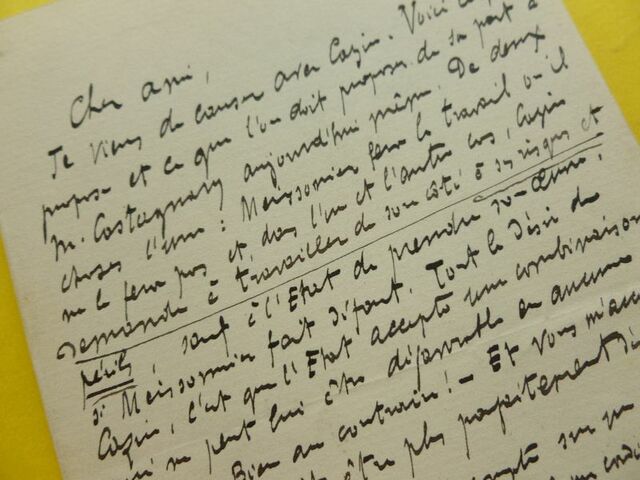 Cher ami,
Je viens de causer avec Cazin. Voici ce
propose et ce que l'on doit proposer de sa part à
M. Castagnary aujourd'hui même. De deux
choses l'une : Meissonier fera le travail où il
ne le fera pas et, dans l'un et l'autre cas, Cazin
demande à travailler de son côté à ses risques et
périls, sauf à l'Etat de prendre son œuvre,
si Meissonier fait défaut. Tout le désir de
Cazin, c'est que l'Etat accepte une combinaison
qui ne peut lui être défavorable en aucune
Bien au contraire! - Et vous m'acc
être plus parfaitement
sur